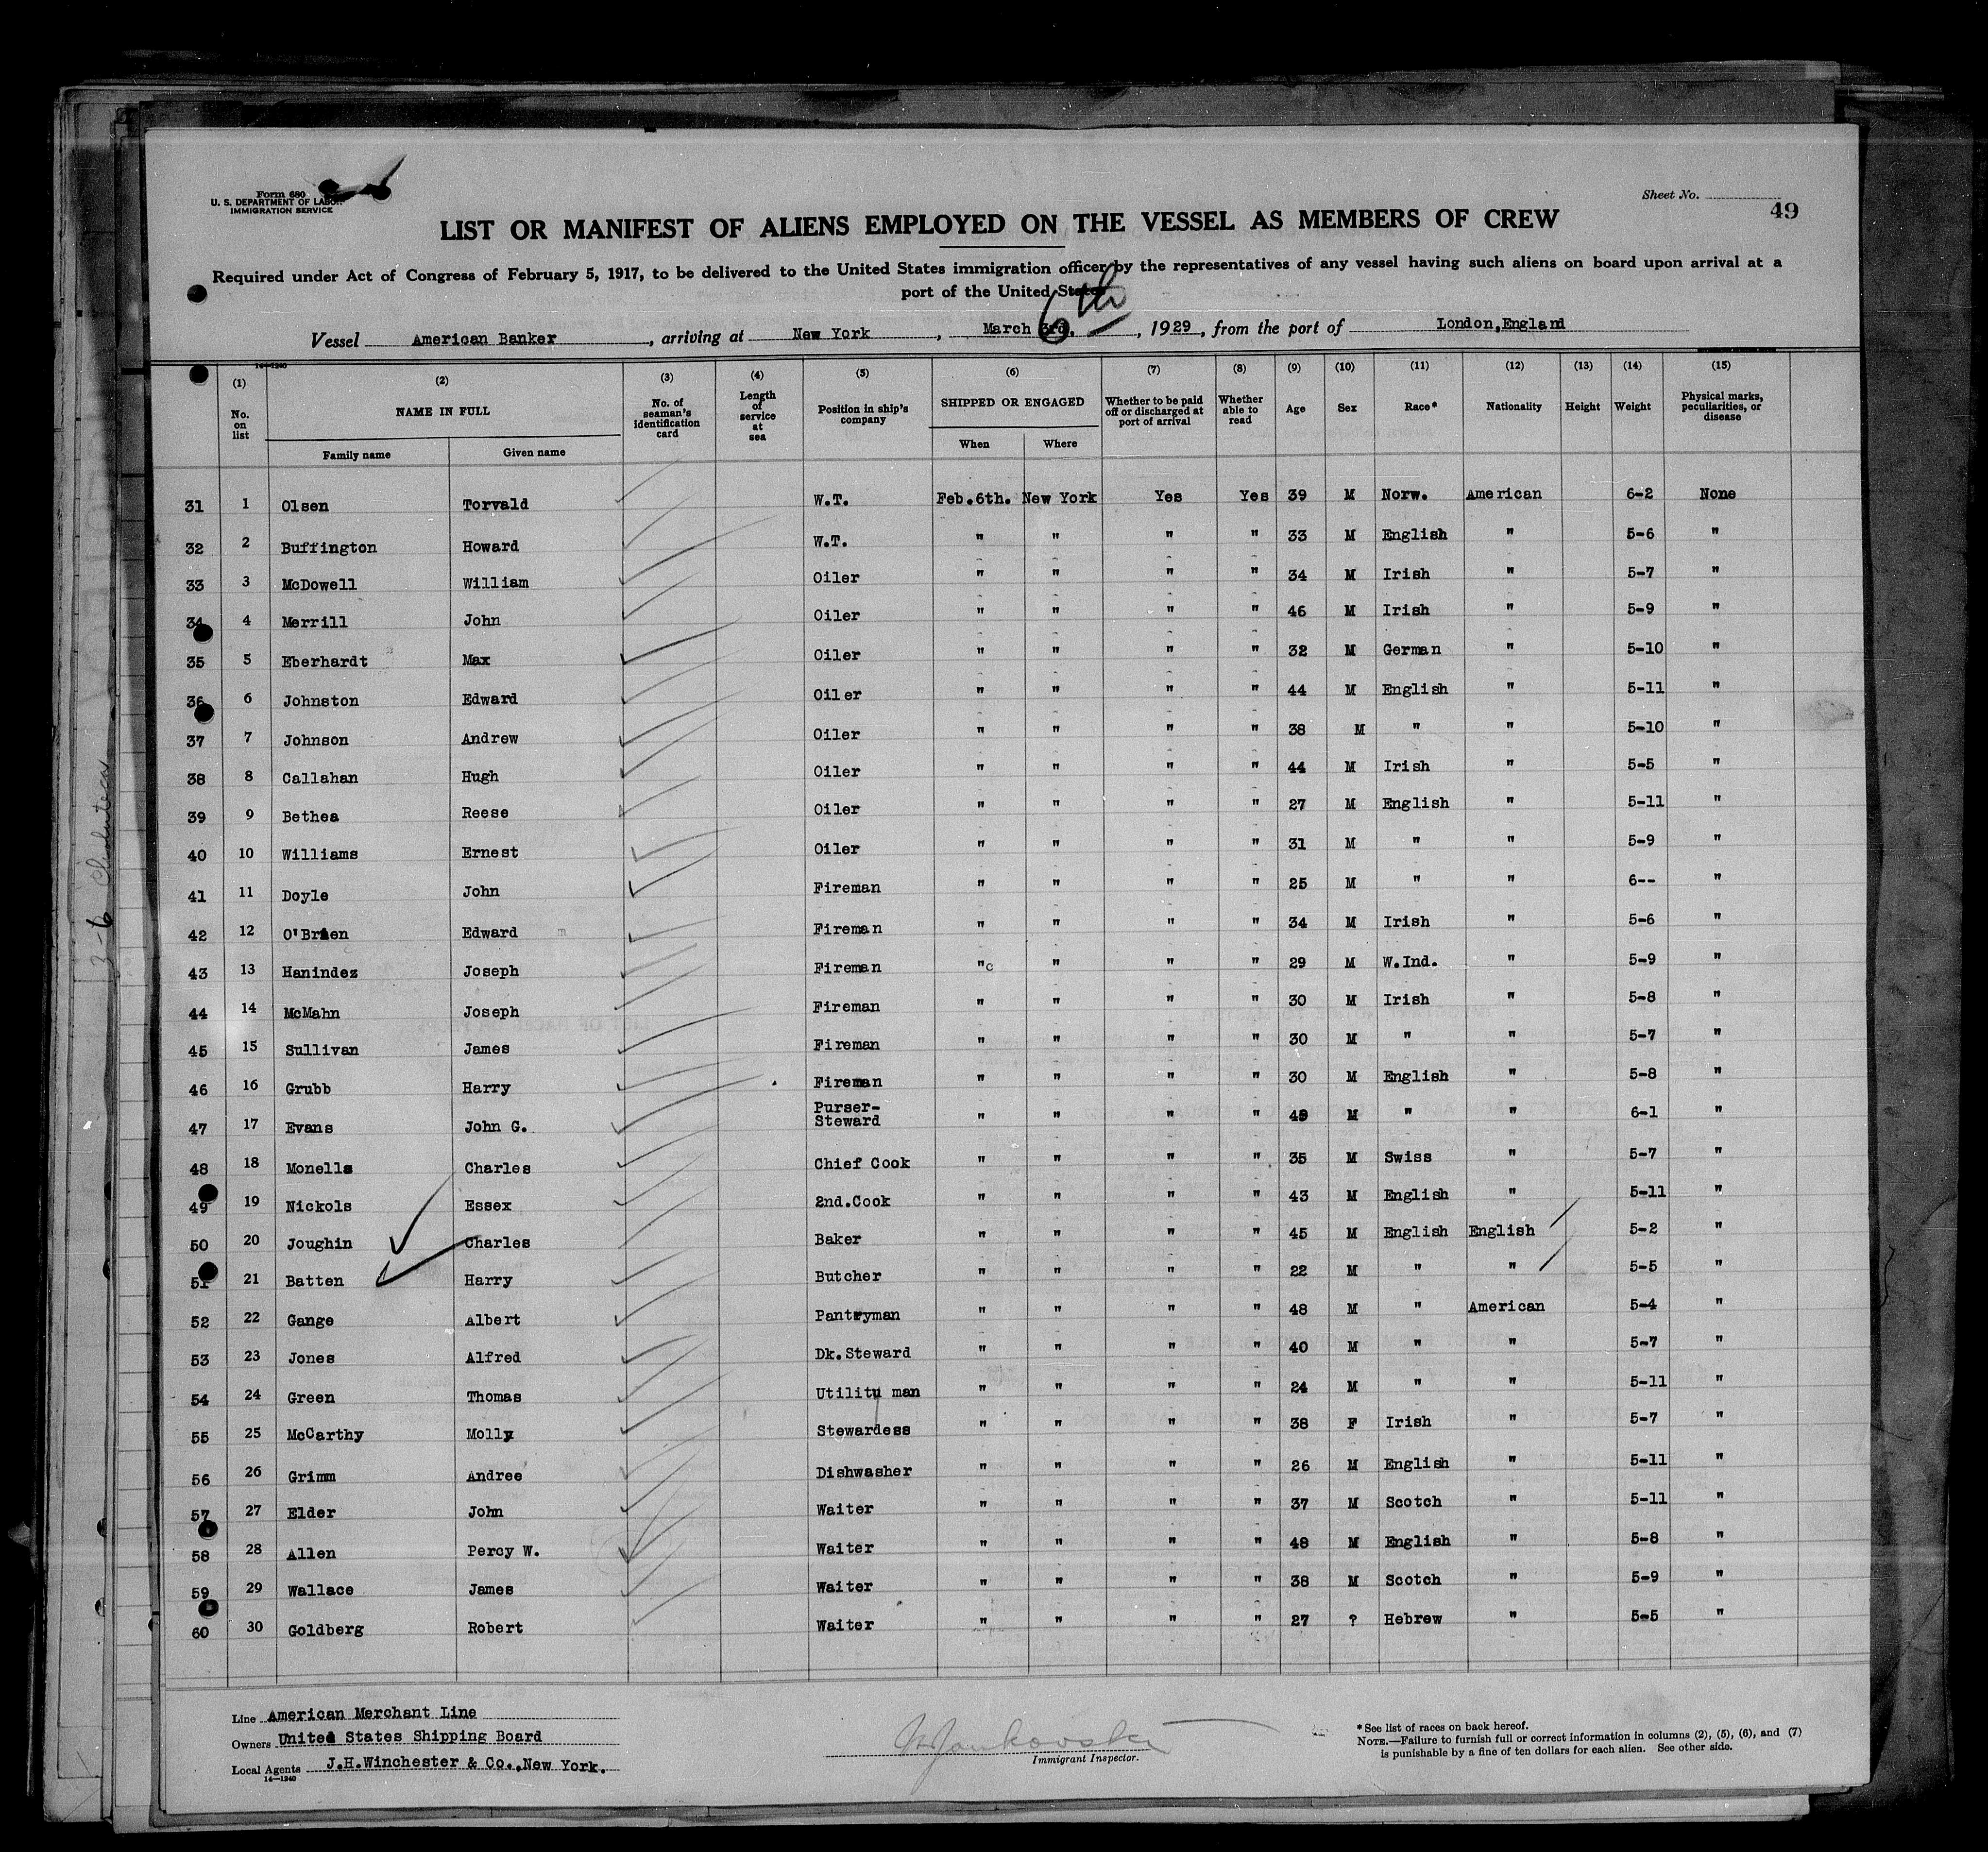 Form 680
U. S. DEPARTMENT OF LABOR
IMMIGRATION SERVICE
Sheet No.
49
LIST OR MANIFEST OF ALIENS EMPLOYED ON THE VESSEL AS MEMBERS OF CREW
Required under Act of Congress of February 5, 1917, to be delivered to the United States immigration officer by the representatives of any vessel having such aliens on board upon arrival at a
port of the United States
6th
Vessel American Banker, arriving at New York, March 3rd, 1929, from the port of London,England
14-1240
(1) (2) (3) (4) (5) (6) (7) (8) (9) (10) (11) (12) (13) (14) (15)
No. on list NAME IN FULL No. of seaman's identification card Length of service at sea Position in ship's company SHIPPED OR ENGAGED Whether to be paid off or discharged at port of arrival Whether able to read Age Sex Race* Nationality Height Weight Physical marks, peculiarities, or disease
Family name Given name When Where
31 1 Olsen Torvald W.T. Feb.6th. New York Yes Yes 39 M Norw. American 6-2 None
32 2 Buffington Howard W.T. " " " " 33 M English " 5-6 "
33 3 McDowell William Oiler " " " " 34 M Irish " 5-7 "
34 4 Merrill John Oiler " " " " 46 M Irish " 5-9 "
35 5 Eberhardt Max Oiler " " " " 32 M German " 5-10 "
36 6 Johnston Edward Oiler " " " " 44 M English " 5-11 "
37 7 Johnson Andrew Oiler " " " " 38 M " " 5-10 "
38 8 Callahan Hugh Oiler " " " " 44 M Irish " 5-5 "
39 9 Bethea Reese Oiler " " " " 27 M English " 5-11 "
40 10 Williams Ernest Oiler " " " " 31 M " " 5-9 "
41 11 Doyle John Fireman " " " " 25 M " " 6-- "
42 12 O'Brien Edward Fireman " " " " 34 M Irish " 5-6 "
43 13 Hanindez Joseph Fireman "c " " " 29 M W.Ind. " 5-9 "
44 14 McMahn Joseph Fireman " " " " 30 M Irish " 5-8 "
45 15 Sullivan James Fireman " " " " 30 M " " 5-7 "
46 16 Grubb Harry Fireman " " " " 30 M English " 5-8 "
47 17 Evans John G. Purser-Steward " " " " M " " 6-1 "
48 18 Monella Charles Chief Cook " " " " 35 M Swiss " 5-7 "
49 19 Nickols Essex 2nd.Cook " " " " 43 M English " 5-11 "
50 20 Joughin Charles Baker " " " " 45 M English English 5-2 "
51 21 Batten Harry Butcher " " " " 22 M " " 5-5 "
52 22 Gange Albert Pantryman " " " " 48 M " American 5-4 "
53 23 Jones Alfred Dk.Steward " " " " 40 M " " 5-7 "
54 24 Green Thomas Utility man " " " " 24 M " " 5-11 "
55 25 McCarthy Molly Stewardess " " " " 38 F Irish " 5-7 "
56 26 Grimm Andree Dishwasher " " " " 26 M English " 5-11 "
57 27 Elder John Waiter " " " " 37 M Scotch " 5-11 "
58 28 Allen Percy W. Waiter " " " " 48 M English " 5-8 "
59 29 Wallace James Waiter " " " " 38 M Scotch " 5-9 "
60 30 Goldberg Robert Waiter " " " " 27 ? Hebrew " 5-5 "
Line American Merchant Line
Owners United States Shipping Board
Local Agents J.H.Winchester & Co.,New York.
14-1240
Immigrant Inspector.
*See list of races on back hereof.
NOTE.—Failure to furnish full or correct information in columns (2), (5), (6), and (7)
is punishable by a fine of ten dollars for each alien. See other side.